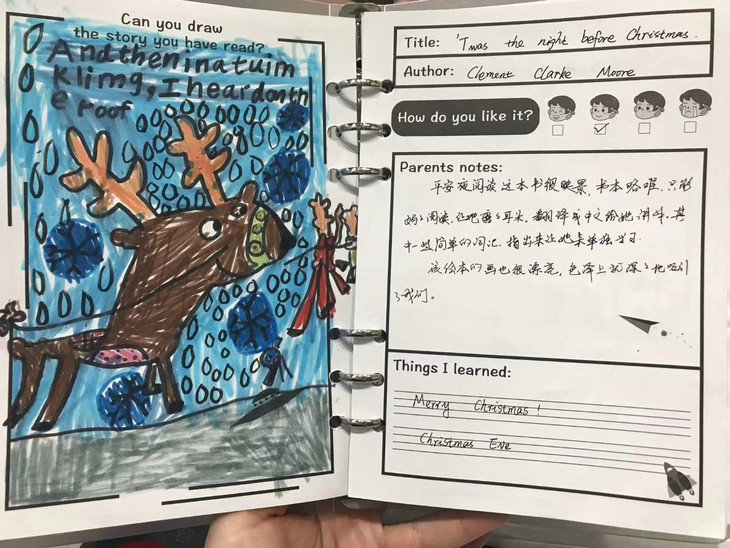 Can you draw
the story you have read?
Andtheninatuim
klimg, Iheardonth
e roof
Title: 'Twas the night before Christmas.
Author: Clement Clarke Moore
How do you like it?
Parents notes:
平安夜阅读这本书很映景,书本略难,只能
妈妈阅读,让她磨磨耳朵,翻译成中文给她讲解。其
中一些简单的词汇,指出来让她来单独学习.
该绘本的画也很漂亮,色泽上就深深地吸引
了我们。
Things I learned:
Merry Christmas!
Christmas Eve